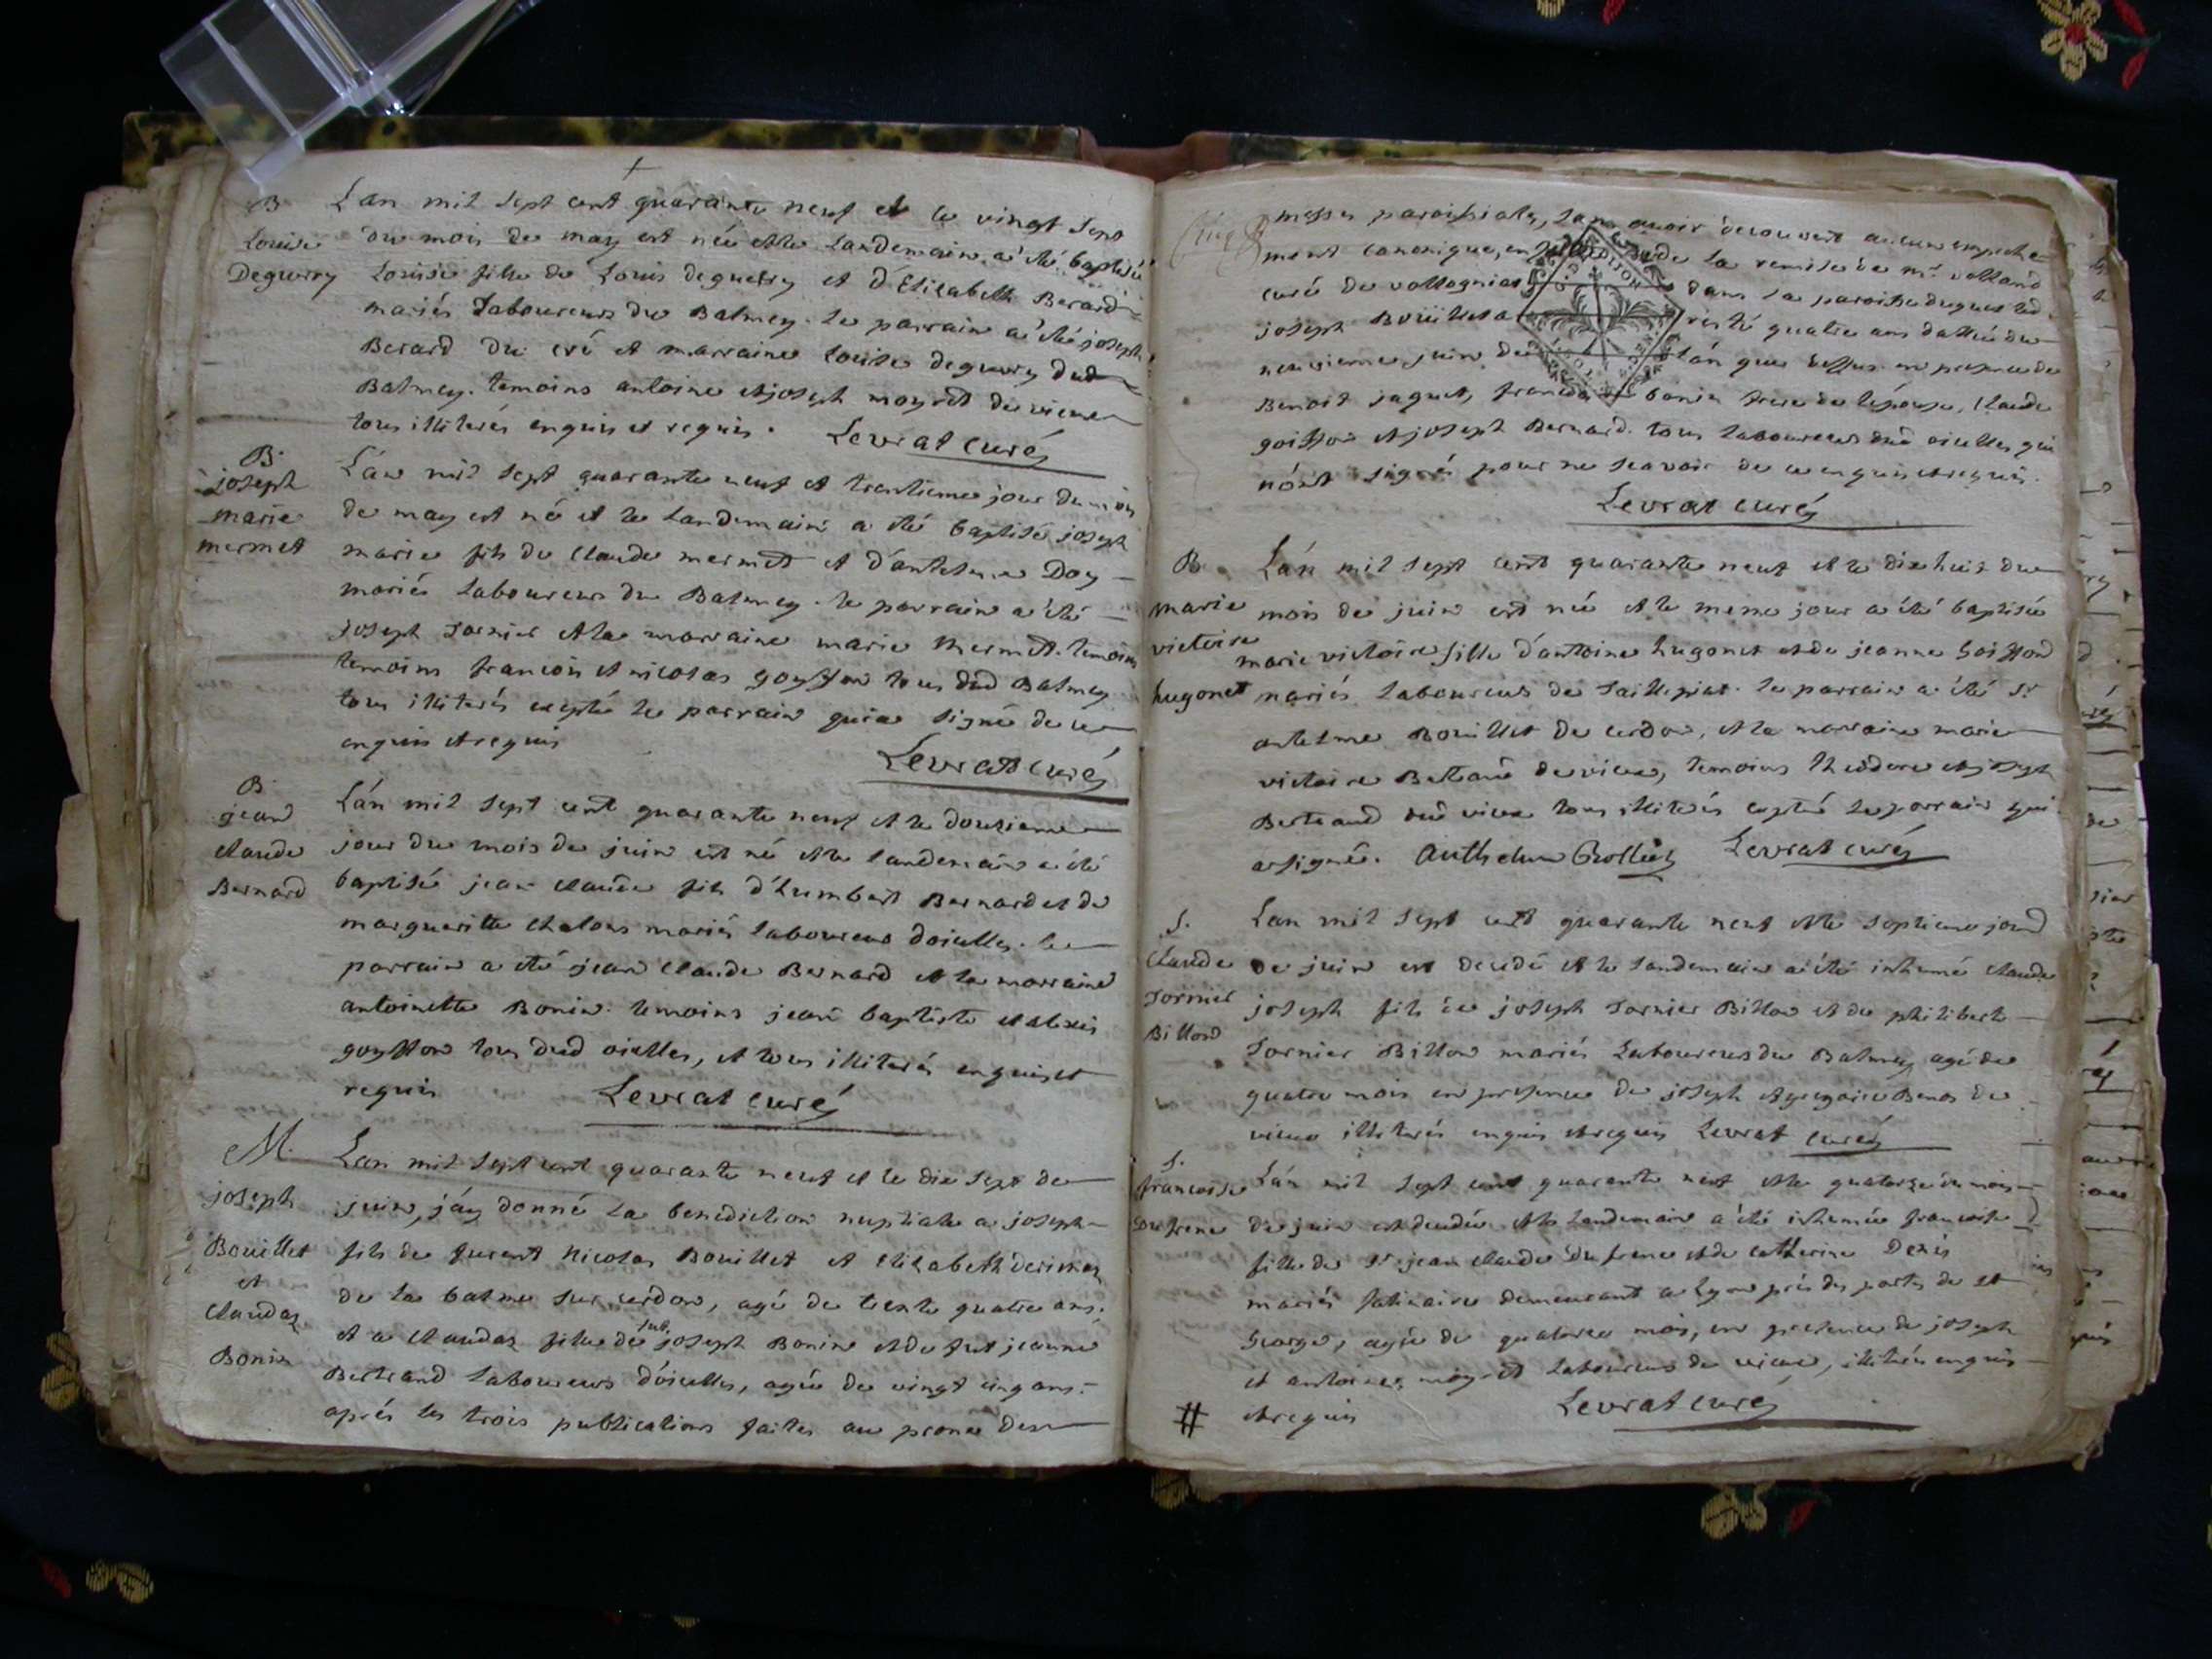 B
Louise
Deguerry
Lan mil sept cent quarante neuf et le vingt sept
du mois de may est née et le landemain a été baptisée
Louise fille de Louis deguerry et d'Elisabeth Berard
mariés Laboureurs du Balmey. le parrain a été joseph
Berard du cré et marraine Louise deguerry dud
Balmey. temoins antoine et joseph moyret de vieux
tous illiterés enquis et requis. Levrat curé
B
joseph
marie
mermet
Lán mil sept quarante neuf et trentieme jour du mois
de may est né et le landemain a été baptisé joseph
marie fils de Claude mermet et d'antelme Doy
mariés Laboureurs du Balmey. le parrain a été
joseph Jornier et la marraine marie mermet. temoins
temoins francois et nicolas goyffon tous dud Balmey
tous illiterés excepté le parrain qui a signé de ce
enquis et requis
Levrat curé
B
jean
claude
Bernard
Lán mil sept cent quarante neuf et le douzieme
jour du mois de juin est né et le landemain a été
baptisé jean claude fils d'humbert Bernard et de
margueritte chalons mariés laboureurs doiselles. le
parrain a été jean claude Bernard et la marraine
antoinette Bonin. temoins jean baptiste et alexis
goyffon tous dud oiselles, et tous illiterés enquis et
requis Levrat curé
M.
joseph
Bouillet
et
claudaz
Bonin
Lan mil sept cent quarante neuf et le dix sept de
juin, jáy donné la benediction nuptiale a joseph
fils de furent Nicolas Bouillet et Elizabeth
de la balme sur cerdon, agé de trente quatre ans.
et a claudaz fille de joseph Bonin et de fut jeanne
Bertrand Laboureurs d'oiselles, agée de vingt cinq ans.
aprés les trois publications faites au prone des
messes paroissiales, sans avoir decouvert aucun empeche
ment canonique, en de la remise de mr. volland
curé de vollognias dans sa paroisse duquel led.
joseph Bouillet a resté quatre ans dattée du
neuvieme juin de lán que dessus en presence de
Benoit jaquet, bonin frere de lépouse, claude
goiffon et joseph Bernard. tous laboureurs dud oiselles qui
nónt signés pour ne scavoir de ce enquis et requis.
Levrat curé
B
marie
victoire
hugonet
Lán mil sept cent quarante neuf et le dix huit du
mois de juin est née et le meme jour a été baptisée
marie victoire fille d'antoine hugonet et de jeanne Goiffon
mariés laboureurs de le parrain a été Sr
antelme Bouillet de cerdon, et la marraine marie
victoire de vieux, temoins theodore et joseph
Bertrand dud vieux tous illiterés excepté le parrain qui
a signé. Levrat curé
S.
Claude
Jornier
Billon
Lan mil sept cent quarante neuf et le septieme jour
de juin est decedé et le landemain a été inhumé claude
joseph fils de joseph Jornier Billon et de philiberte
Jornier Billon mariés Laboureurs du Balmey agé de
quatre mois en presence de joseph et gregoire de
vieux illiterés enquis et requis Levrat curé
S.
francoise
Dufrene
Lán mil sept cent quarante neuf et le quatorze du mois
de juin est decedée et le landemain a été inhumée francoise
fille de Sr jean claude Dufrene et de catherine Denis
mariés demeurant a Lyon prés des portes de st
George, agée de quatorze mois, en presence de joseph
et antoine moyret Laboureurs de vieux, illiterés enquis
et requis Levrat curé